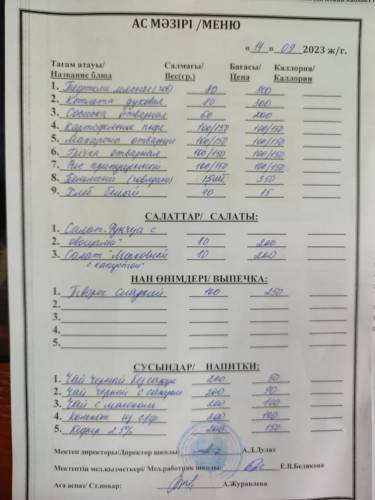 АС МӘЗІРІ /МЕНЮ
« 14 » 09 2023 ж/г.
Тағам атауы/ Салмағы/ Бағасы/ Каллория/
Название блюд Вес(гр.) Цена Каллории
1. 80
2. Котлета духовая 80 300
3. Сосиска отварная 60 200
4. Картофельное пюре 100/150 100/150
5. Макароны отварные 100/150 100/150
6. Гречка отварная 100/150 100/150
7. Рис припущенный 100/150 100/150
8. Пельмени 350
9. Хлеб белый 40 15
САЛАТТАР/ САЛАТЫ:
1. Салат Фунчоза с
2. овощами" 10 200
3. Салат Морковный 10 200
с капустой"
НАН ӨНІМДЕРІ/ ВЫПЕЧКА:
1. сладкий 100 250
2.
3.
4.
5.
СУСЫНДАР/ НАПИТКИ:
1. Чай черный без сахара 200 50
2. Чай черный с сахаром 200
3. Чай с молоком 200 100
4. компот из с/ф 200 100
5. Кефир 2.5% 200 150
Мектеп директоры/Директор школы: А.Л.Дулат
Мектептің мед.қызметкері/ Мед.работник школы: Е.В.Беликова
Аға аспаз/ Ст.повар: А.Журавлова